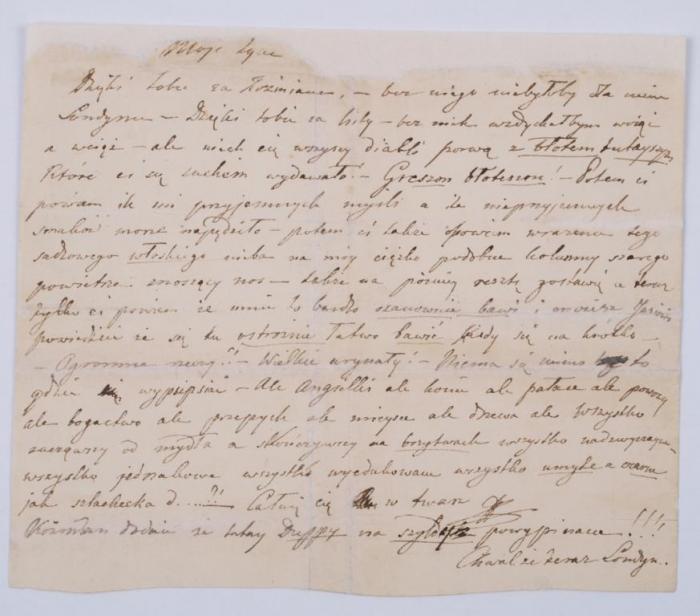 Moje życie
Dzięki tobie za Koźmiana, – bez niego niebyłoby dla mnie
Londynu – Dzięki tobie za listy – bez nich wzdychałbym wciąż
a wciąż – ale niech cię wszyscy diabli porwą z błotem tutayszym
które ci się suchem wydawało. – Greszem błoteszem! – Potem ci
powiem ile mi przyjemnych myśli a ile nieprzyjemnych
smaków morze napędziło – potem ci także powiem wrażenie tego
sadzowego włoskiego nieba na mój ciężko podobne kolumny szarego
powietrza znoszący nos – także na później resztę zostawię a teraz
tylko ci powiem że mnie to bardzo szanownie bawi i możesz Jasiowi
powiedzieć że się tu ostrożnie łatwo bawić kiedy się na krótko –
– Ogromne rzeczy?! – Wielkie urynały! – Niema są nimo to
gdzie wypsipsić – Ale Angielki ale konie ale pałace ale powozy
ale bogactwo ale przepych ale miejsce ale drzewa ale wszystko
zacząwszy od mydła a skończywszy na brzytwach wszystko nadzwyczajne –
wszystko jednakowe wszystko wyedukowane wszystko umyte a czarne
jak szlachecka d.....?! Całuję cię w twarz
Koźmian dodaie że tutay Duppy na sztych powypinane!!!
Chwalże teraz Londyn.